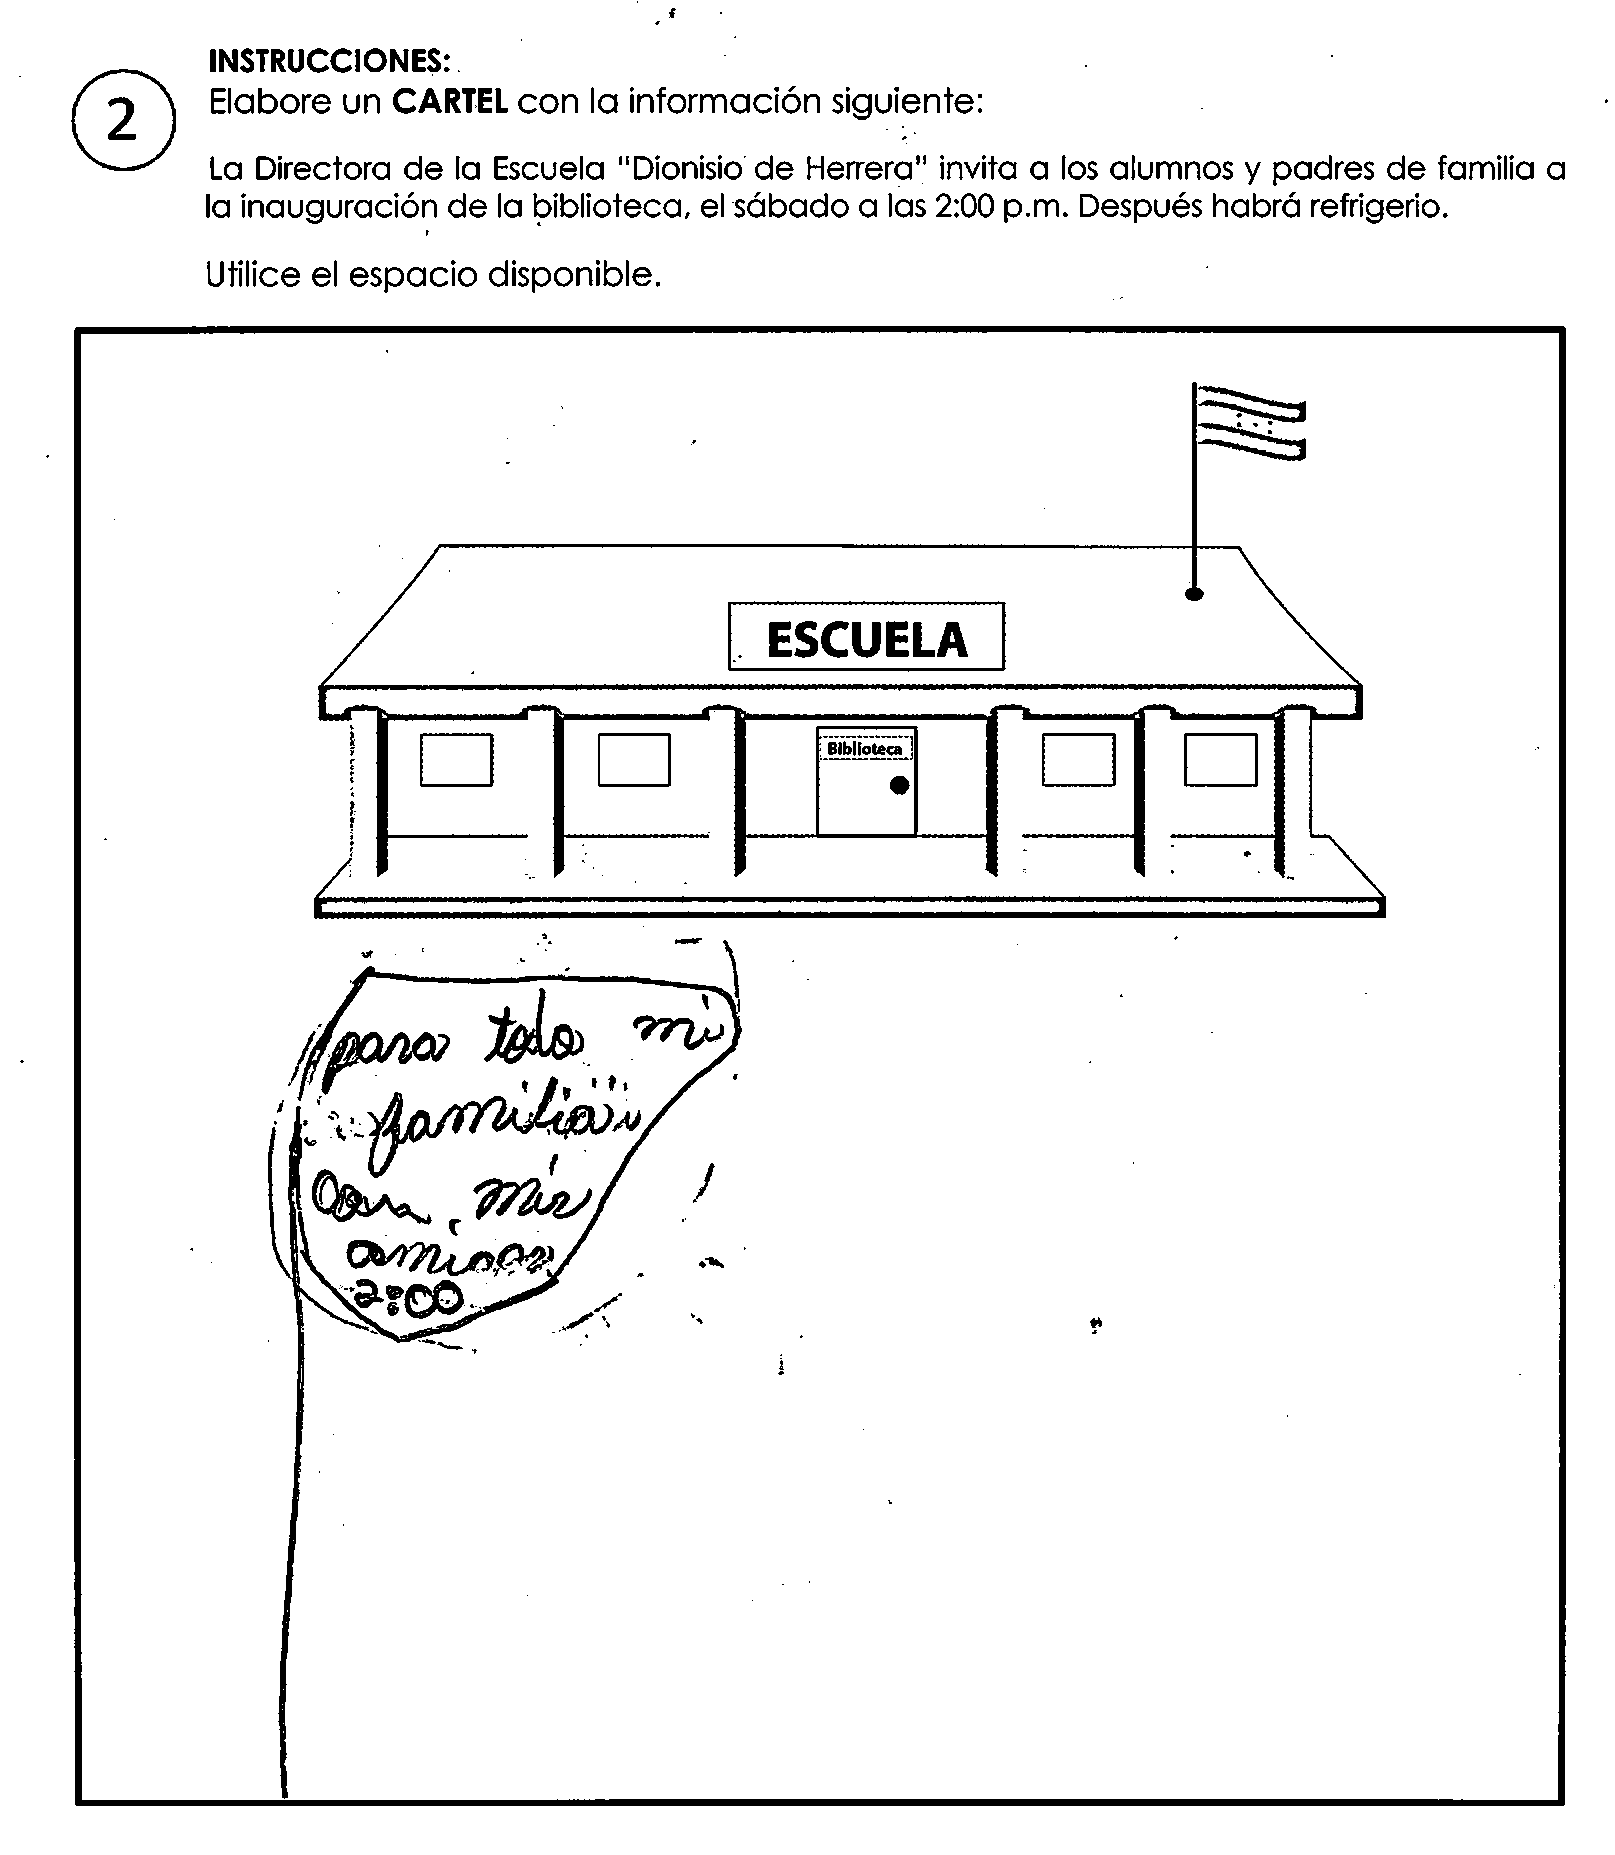 INSTRUCCIONES:
2
Elabore un CARTEL con la información siguiente:
La Directora de la Escuela "Dionisio de Herrera" invita a los alumnos y padres de familia a
la inauguración de la biblioteca, el sábado a las 2:00 p.m. Después habrá refrigerio.
Utilice el espacio disponible.
ESCUELA
Biblioteca
para todo mi
familia
mis
amigos
2:00